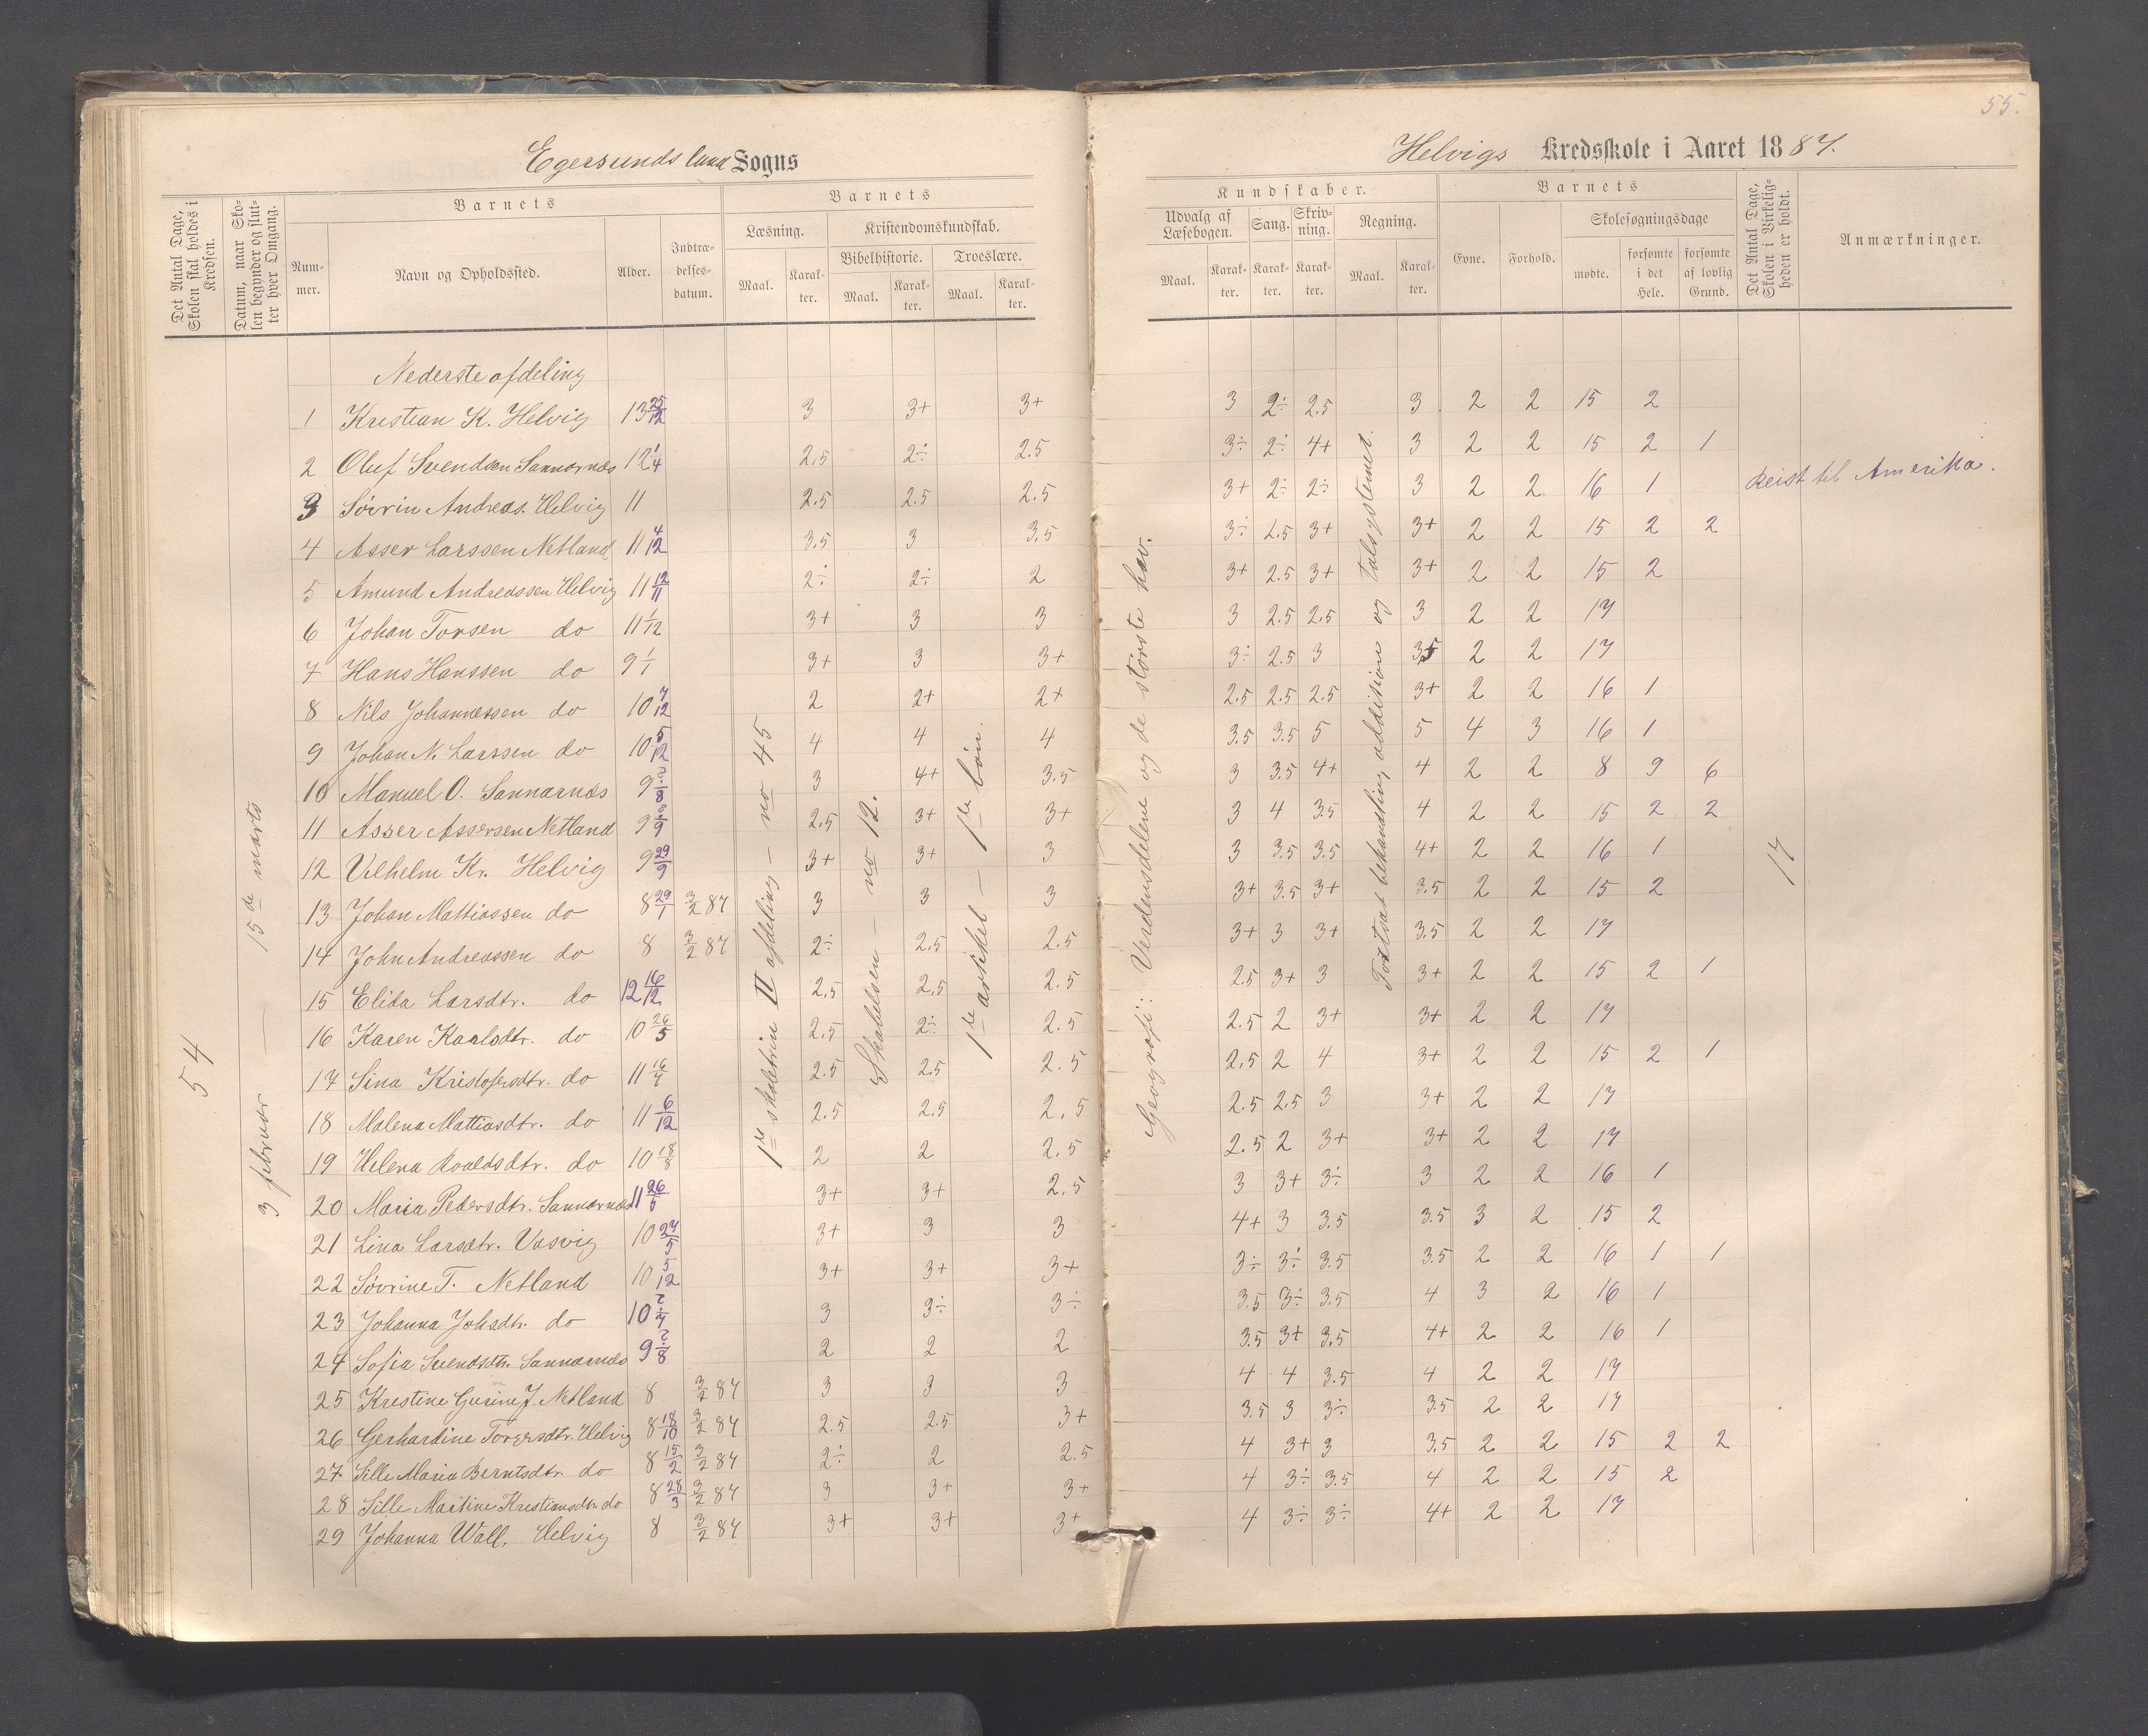 55.
Egersunds land Sogns
Helvigs Kredsskole i Aaret 1887.
Det Antal Dage, Skolen skal holdes i Kredsen.
Datum, naar Skolen begynder og slutter hver Omgang.
Barnets
Nummer.
Navn og Opholdssted.
Alder.
Indtrædelsesdatum.
Barnets
Læsning.
Maal.
Karakter.
Kristendomskundskab.
Bibelhistorie.
Maal.
Karakter.
Troeslære.
Maal.
Karakter.
Kundskaber.
Udvalg af Læsebogen.
Maal.
Karakter.
Sang.
Karakter.
Skrivning.
Karakter.
Regning.
Maal.
Karakter.
Barnets
Evne.
Forhold.
Skolesøgningsdage
mødte.
forsømte i det Hele.
forsømte af lovlig Grund.
Det Antal Dage, Skolen i Virkeligheden er holdt.
Anmærkninger.
54
3 februar — 15de marts
1ste skoletrin II afdeling — no 45
Skabelsen — no 12.
1ste artikel — 1ste bøn.
Geografi: Verdensdelene og de største hav.
Talsystemet
17
Nederste afdeling
1 Kristian K. Helvig 13 25/12 3 3+ 3+ 3 2÷ 2.5 3 2 2 15 2
2 Oluf Svendsen Sannarnæs 12 1/4 2.5 2÷ 2.5 3÷ 2÷ 4+ 3 2 2 15 2 1
3 Sövrin Andreas. Helvig 11 2.5 2.5 2.5 3+ 2÷ 2÷ 3 2 2 16 1 Reist til Amerika.
4 Asser Larssen Netland 11 4/12 3.5 3 3.5 3÷ 2.5 3+ 3+ 2 2 15 2 2
5 Amund Andreassen Helvig 11 12/11 2÷ 2÷ 2 3+ 2.5 3+ 3+ 2 2 15 2
6 Johan Torsen do 11 1/12 3+ 3 3 3 2.5 2.5 3 2 2 17
7 Hans Hanssen do 9 1/1 3+ 3 3+ 3÷ 2.5 3 3.5 2 2 17
8 Nils Johannessen do 10 7/12 2 2+ 2+ 2.5 2.5 2.5 3+ 2 2 16 1
9 Johan N. Larssen do 10 5/12 4 4 4 3.5 3.5 5 5 4 3 16 1
10 Manuel O. Sannarnæs 9 2/8 3 4+ 3.5 3 3.5 4+ 4 2 2 8 9 6
11 Asser Assersen Netland 9 2/9 2.5 3+ 3+ 3 4 3.5 4 2 2 15 2 2
12 Vilhelm Kr. Helvig 9 29/9 3+ 3+ 3 3 3.5 3.5 4+ 2 2 16 1
13 Johan Mattiassen do 8 29/1 3/2 87 3 3 3 3+ 3.5 3+ 3.5 2 2 15 2
14 John Andreassen do 8 3/2 87 2÷ 2.5 2.5 3+ 3 3+ 3.5 2 2 17
15 Elida Larsdtr. do 12 16/12 2.5 2.5 2.5 2.5 3+ 3 3+ 2 2 15 2 1
16 Karen Karlsdtr. do 10 26/5 2.5 2÷ 2.5 2.5 2 3+ 3+ 2 2 17
17 Sina Kristofersdtr. do 11 16/7 2.5 2.5 2.5 2.5 2 4 3+ 2 2 15 2 1
18 Malena Mattiasdtr. do 11 6/12 2.5 2.5 2.5 2.5 2.5 3 3+ 2 2 17
19 Helena Roaldsdtr. do 10 18/8 2 2 2.5 2.5 2 3+ 3+ 2 2 17
20 Maria Pedersdtr. Sannarnæs 11 26/5 3+ 3+ 2.5 3 3+ 3÷ 3 2 2 16 1
21 Lina Larsdtr. Vasvig 10 27/5 3+ 3 3 4+ 3 3.5 3.5 3 2 15 2
22 Sövrine T. Netland 10 5/12 3+ 3+ 3+ 3÷ 3÷ 3.5 3.5 2 2 16 1 1
23 Johanna Johsdtr. do 10 2/7 3 3÷ 3÷ 3.5 3÷ 3.5 4 3 2 16 1
24 Sofia Svendsdtr. Sannarnæs 9 2/8 2 2 2 3.5 3+ 3.5 4+ 2 2 16 1
25 Kristine Gurine J. Netland 8 3/2 87 3 3 3 4 4 3.5 4 2 2 17
26 Gerhardine Torgersdtr. Helvig 8 18/10 3/2 87 2.5 2.5 3+ 3.5 3 3÷ 3.5 2 2 17
27 Sille Maria Berntsdtr. do 8 15/2 3/2 87 2÷ 2 2.5 4 3+ 3 3.5 2 2 15 2 2
28 Sille Martine Kristiansdtr do 8 28/3 3/2 87 3 3+ 3+ 4 3÷ 3.5 4 2 2 15 2
29 Johanna Wall. Helvig 8 3/2 87 3+ 3+ 3+ 4 3÷ 3÷ 4+ 2 2 17